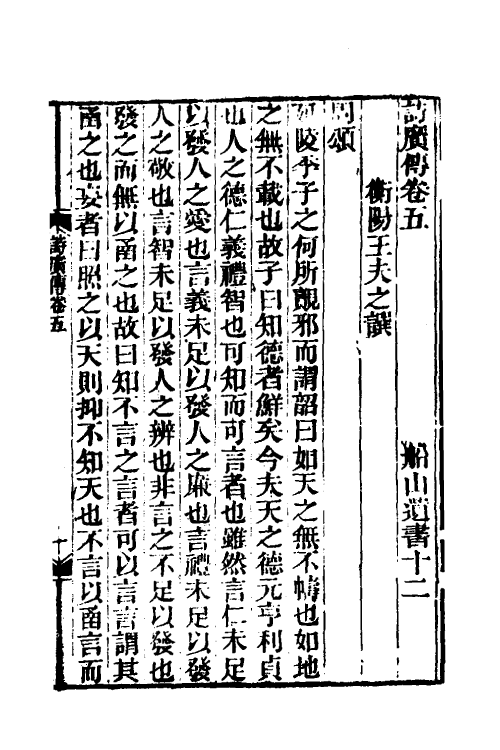 詩廣傳卷五　船山遺書十二
衡陽王夫之譔
周頌
延陵季子之何所覬邪而謂韶曰如天之無不幬也如地
之無不載也故子曰知德者鮮矣今夫天之德元亨利貞
也人之德仁義禮智也可知而可言者也雖然言仁未足
以發人之愛也言義未足以發人之廉也言禮未足以發
人之敬也言智未足以發人之辨也非言之不足以發也
發之而無以函之也故曰知不言之言者可以言言謂其
函之也妄者曰照之以天則抑不知天也不言以函言而
詩廣傳卷五
十